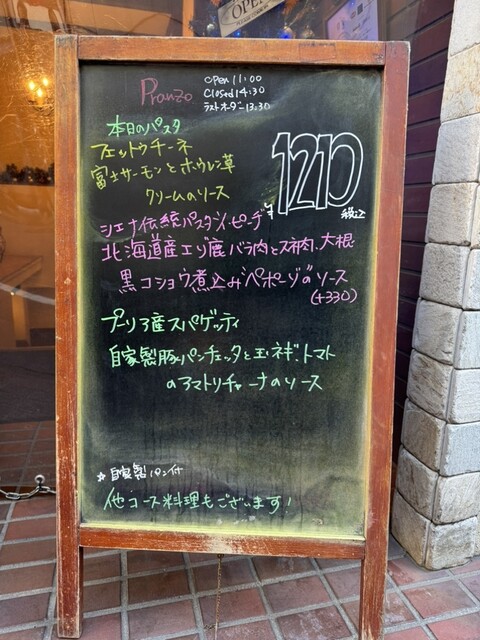 OPEN
Pranzo
open 11:00
Closed 14:30
ラストオーダー 13:30
本日のパスタ
フェットウチーネ
富士サーモンとホウレン草
クリームのソース
¥1210
税込
シエナ伝統パスタ"ピーチ"
北海道産エゾ鹿バラ肉とスネ肉、大根
黒コショウ煮込み"ペポーゾ"のソース
(+330)
プーリア産スパゲッティ
自家製豚パンチェッタと玉ネギ、トマト
のアマトリチャーナのソース
☆自家製パン付
他コース料理もございます!